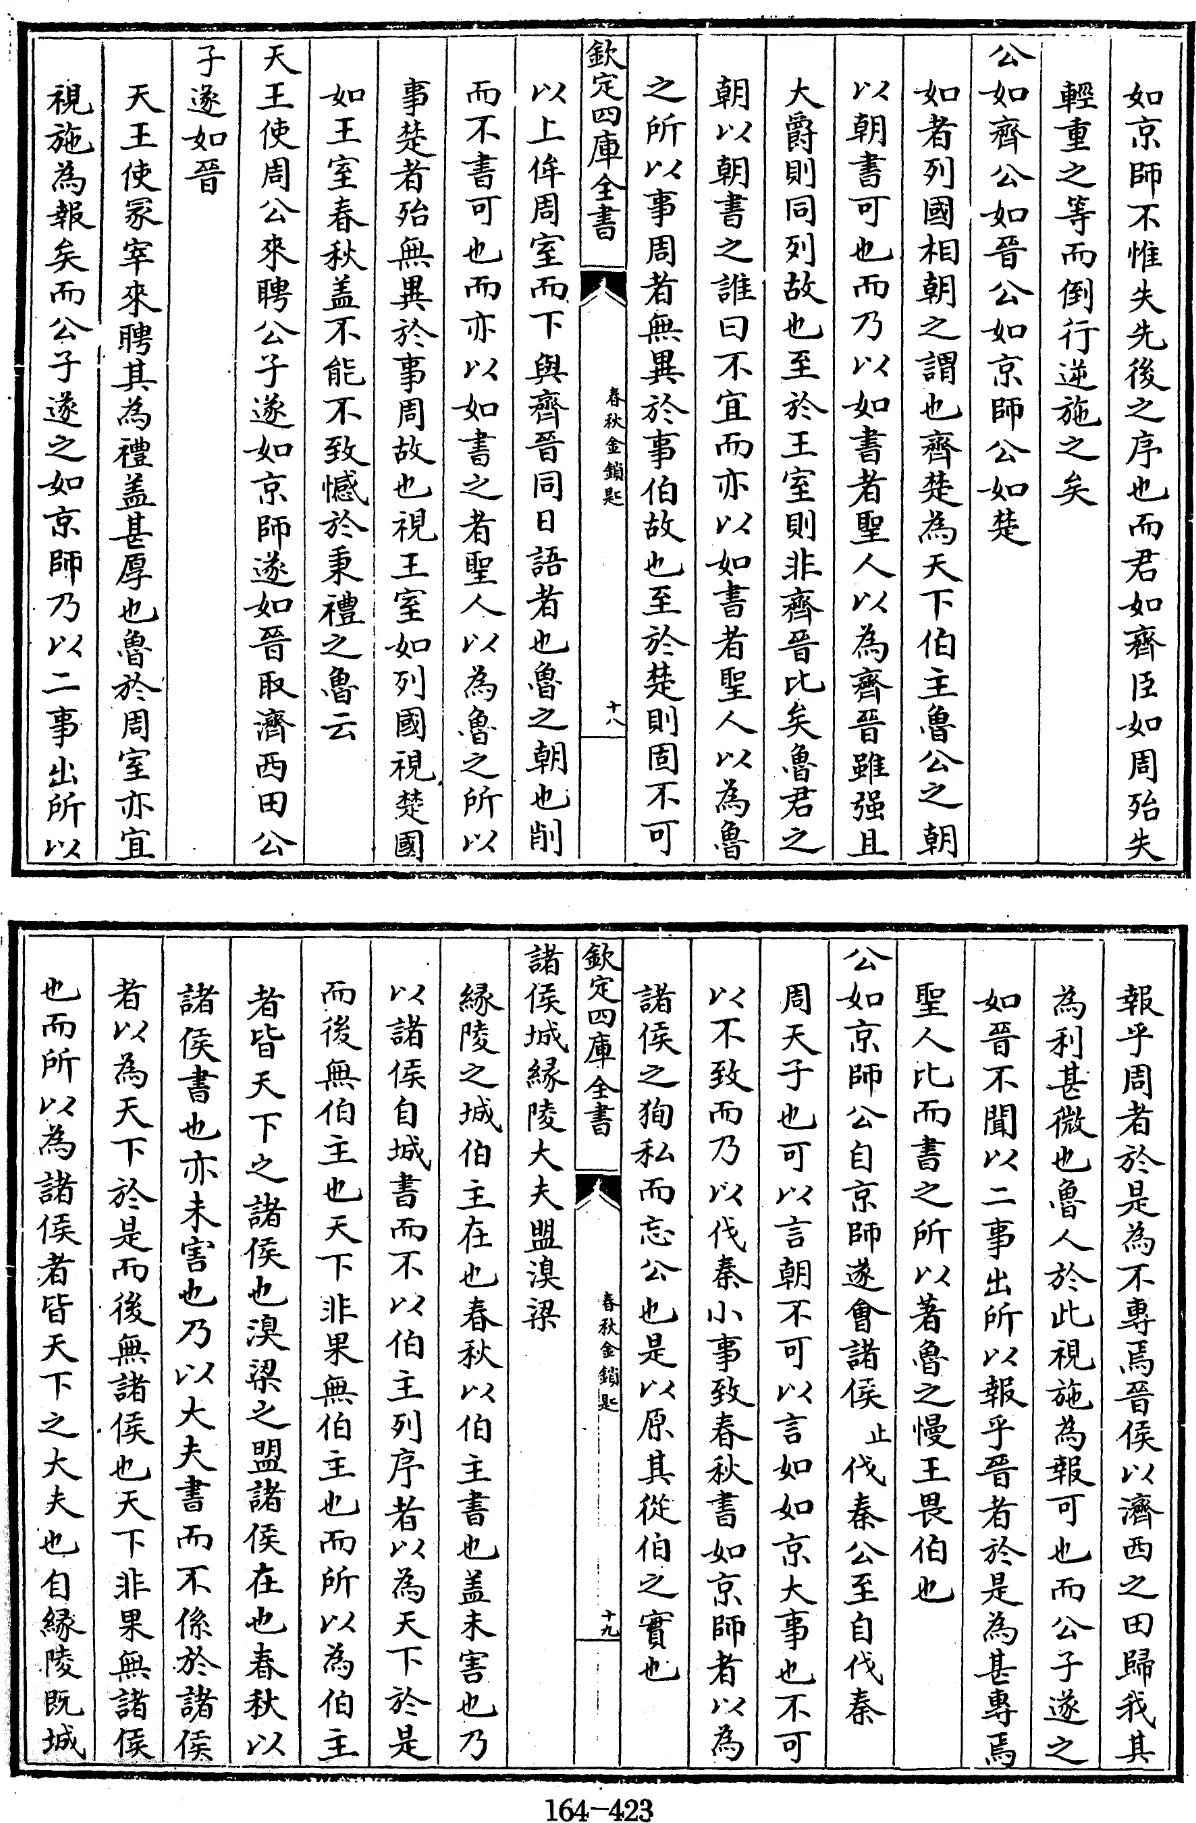 如京師不惟失先後之序也而君如齊臣如周殆失
輕重之等而倒行逆施之矣
公如齊公如晉公如京師公如楚
如者列國相朝之謂也齊楚為天下伯主魯公之朝
以朝書可也而乃以如書者聖人以為齊晉雖强且
大爵則同列故也至於王室則非齊晉比矣魯君之
朝以朝書之誰曰不宜而亦以如書者聖人以為魯
之所以事周者無異於事伯故也至於楚則固不可
欽定四庫全書
春秋金鎖匙
十八
以上侔周室而下與齊晉同日語者也魯之朝也削
而不書可也而亦以如書之者聖人以為魯之所以
事楚者殆無異於事周故也視王室如列國視楚國
如王室春秋盖不能不致憾於秉禮之魯云
天王使周公來聘公子遂如京師遂如晉取濟西田公
子遂如晉
天王使冢宰來聘其為禮盖甚厚也魯於周室亦宜
視施為報矣而公子遂之如京師乃以二事出所以
報乎周者於是為不專焉晉侯以濟西之田歸我其
為利甚微也魯人於此視施為報可也而公子遂之
如晉不聞以二事出所以報乎晉者於是為甚專焉
聖人比而書之所以著魯之慢王畏伯也
公如京師公自京師遂會諸侯止伐秦公至自伐秦
周天子也可以言朝不可以言如如京大事也不可
以不致而乃以伐秦小事致春秋書如京師者以為
諸侯之狥私而忘公也是以原其從伯之實也
欽定四庫全書
春秋金鎖匙
十九
諸侯城縁陵大夫盟湨梁
縁陵之城伯主在也春秋以伯主書也盖未害也乃
以諸侯自城書而不以伯主列序者以為天下於是
而後無伯主也天下非果無伯主也而所以為伯主
者皆天下之諸侯也湨梁之盟諸侯在也春秋以
諸侯書也亦未害也乃以大夫書而不係於諸侯
者以為天下於是而後無諸侯也天下非果無諸侯
也而所以為諸侯者皆天下之大夫也自縁陵既城
164-423